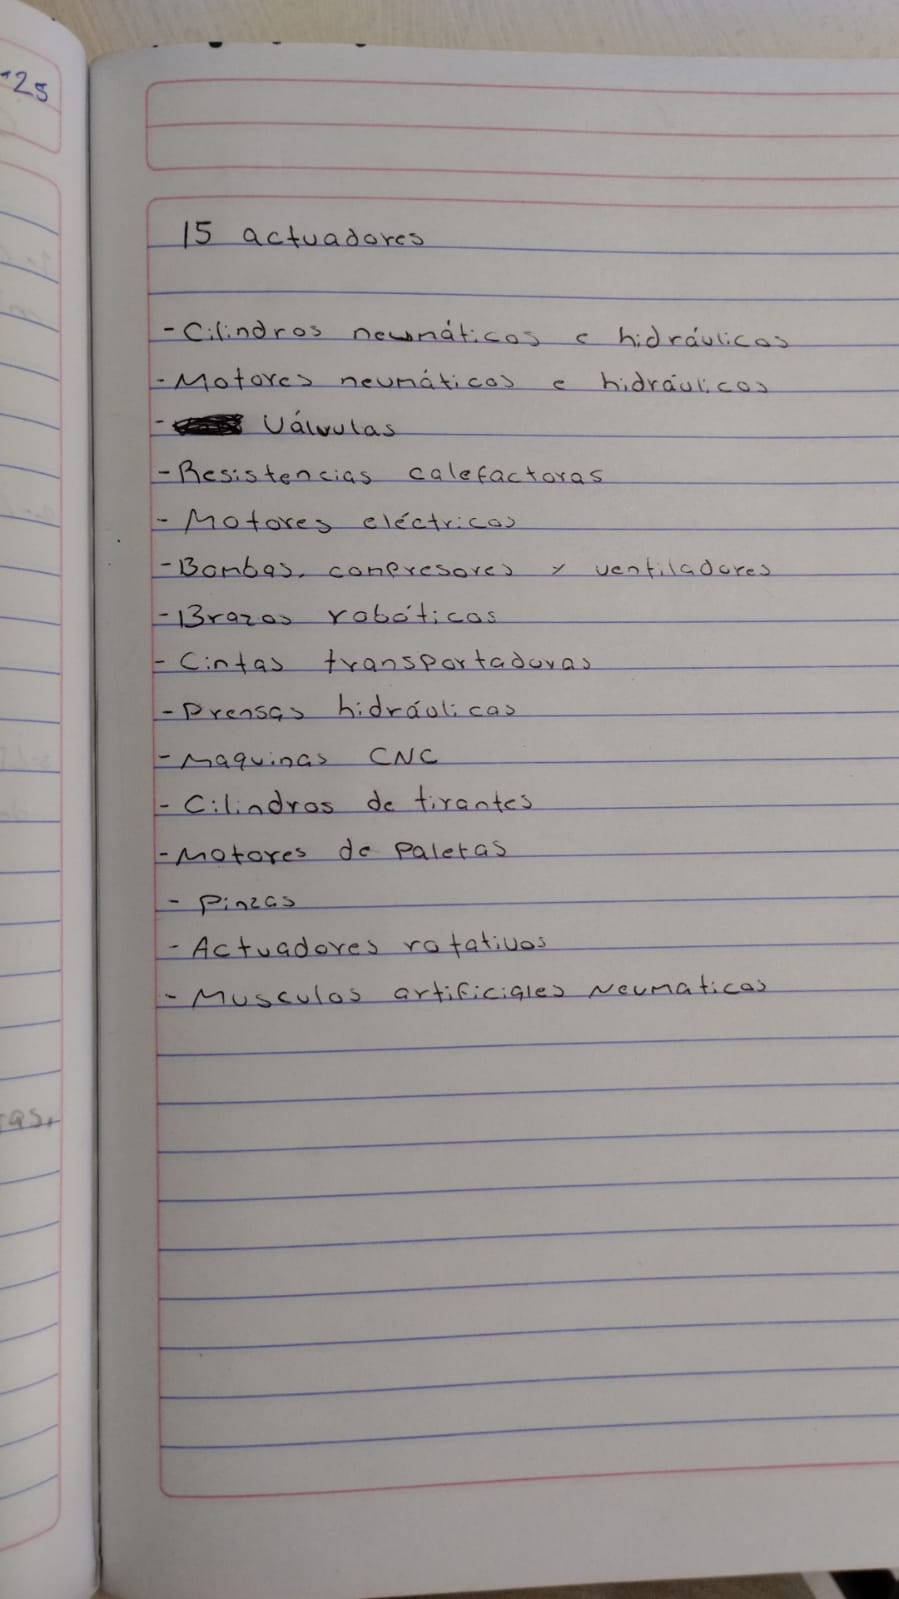 25
15 actuadores
- Cilindros neumáticos e hidráulicos
- Motores neumáticos e hidráulicos
- Válvulas
- Resistencias calefactoras
- Motores eléctricos
- Bombas, conpresores y ventiladores
- Brazos robóticos
- Cintas transportadoras
- Prensas hidráulicas
- Maquinas CNC
- Cilindros de tirantes
- Motores de Paletas
- Pinzas
- Actuadores rotativos
- Musculos artificiales Neumaticos